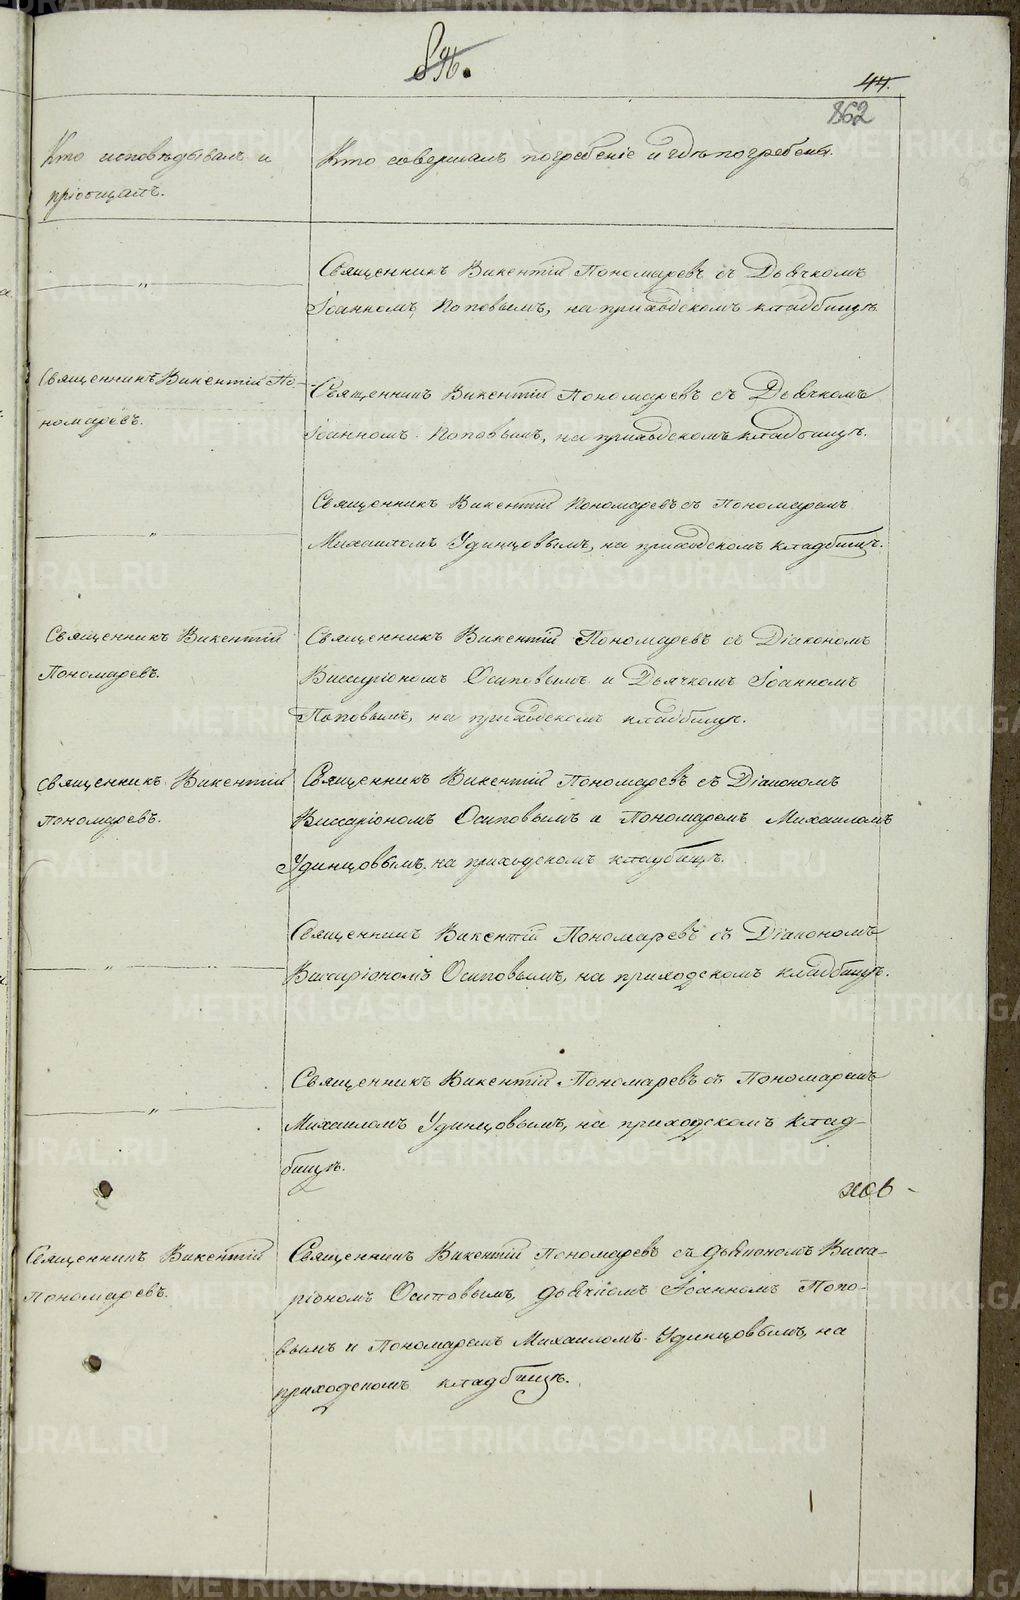 44.
862
Кто исповѣдывалъ и
пріобщалъ.
Кто совершалъ погребеніе и гдѣ погребены.
„
Священникъ Викентій Пономаревъ съ Дьячкомъ
Іоанномъ Поповымъ, на приходскомъ кладбищѣ.
Священникъ Викентій По-
номаревъ.
Священникъ Викентій Пономаревъ съ Дьячкомъ
Іоанномъ Поповымъ, на приходскомъ кладбищѣ.
„
Священникъ Викентій Пономаревъ съ Пономаремъ
Михаиломъ Удинцовымъ, на приходскомъ кладбищѣ.
Священникъ Викентій
Пономаревъ.
Священникъ Викентій Пономаревъ съ Діакономъ
Виссаріономъ Осиповымъ и Дьячкомъ Іоанномъ
Поповымъ, на приходскомъ кладбищѣ.
Священникъ Викентій
Пономаревъ.
Священникъ Викентій Пономаревъ съ Діакономъ
Виссаріономъ Осиповымъ и Пономаремъ Михаиломъ
Удинцовымъ, на приходскомъ кладбищѣ.
„
Священникъ Викентій Пономаревъ съ Діакономъ
Виссаріономъ Осиповымъ, на приходскомъ кладбищѣ.
„
Священникъ Викентій Пономаревъ съ Пономаремъ
Михаиломъ Удинцовымъ, на приходскомъ клад-
бищѣ.
Священникъ Викентій
Пономаревъ.
Священникъ Викентій Пономаревъ съ Дьякономъ Висса-
ріономъ Осиповымъ, Дьячкомъ Іоанномъ Попо-
вымъ и Пономаремъ Михаиломъ Удинцовымъ, на
приходскомъ кладбищѣ.
METRIKI.GASO-URAL.RU